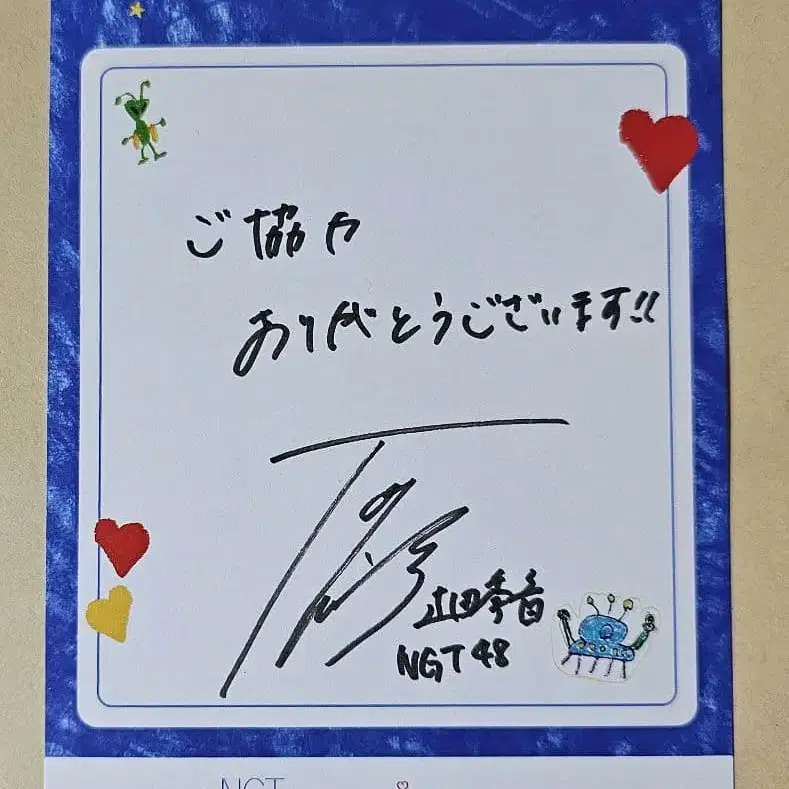 ご協力
ありがとうございます!!
NGT48
NGT